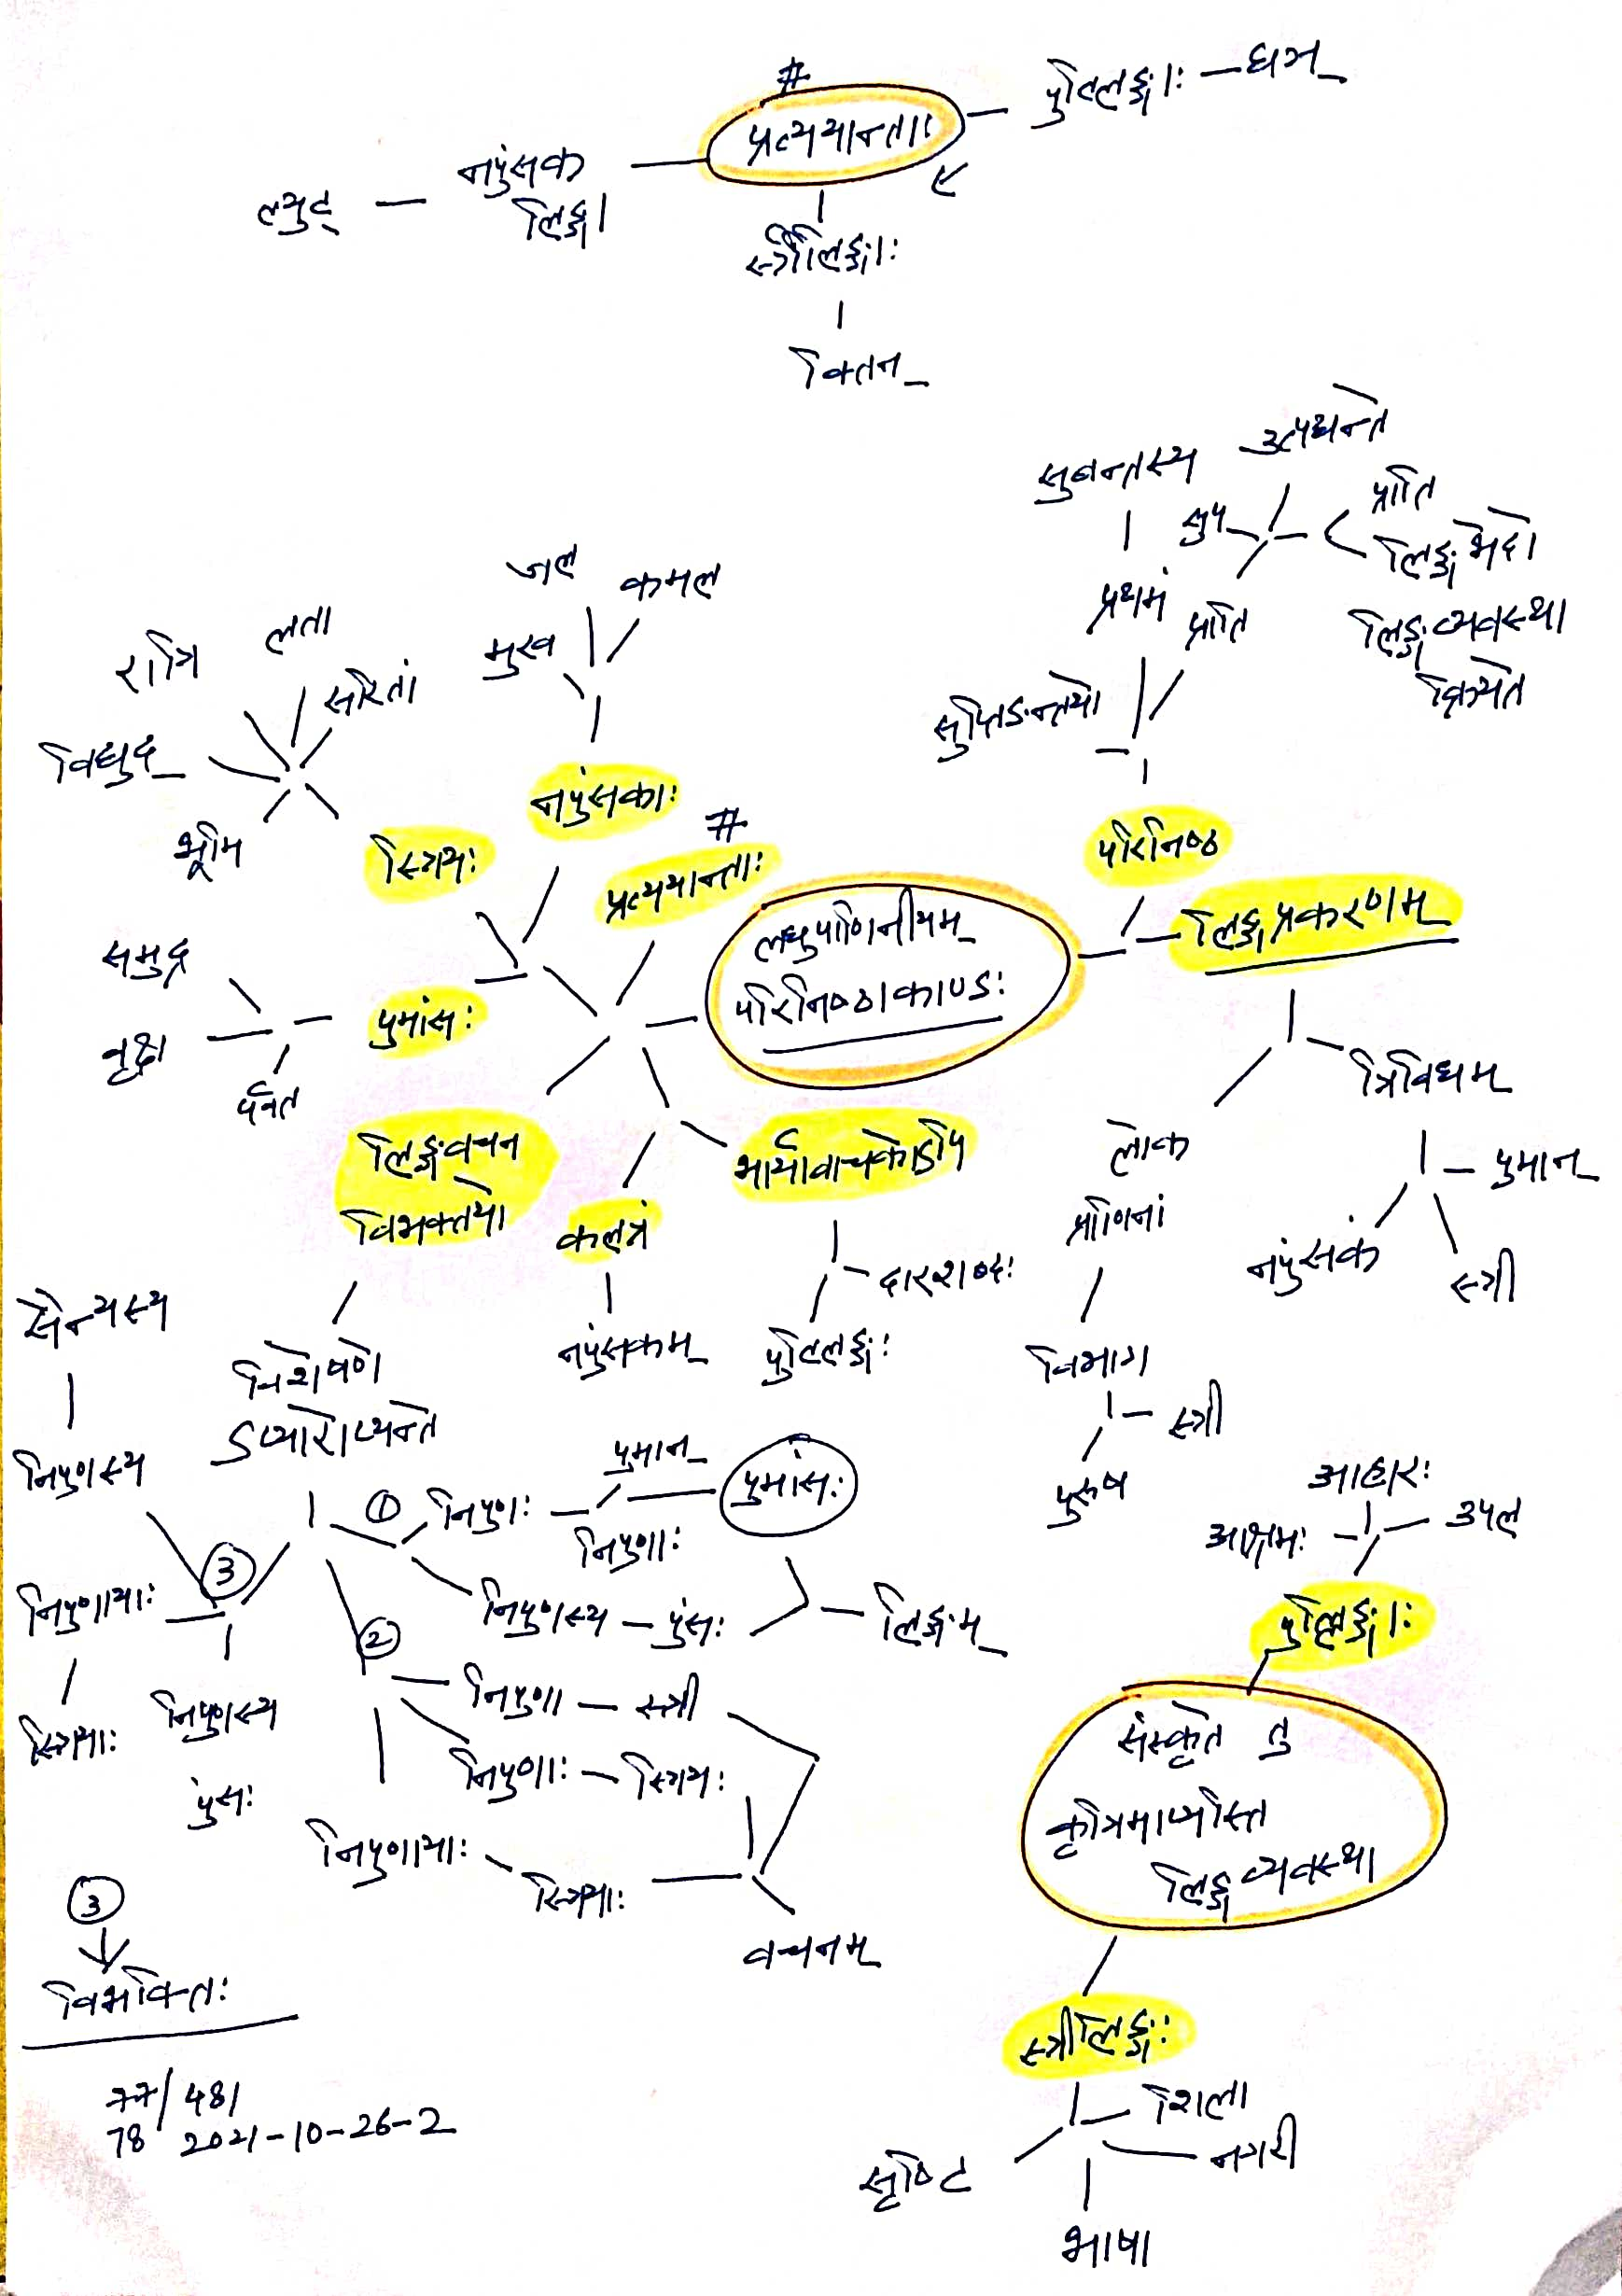 #
प्रत्ययान्ताः
पुल्लिङ्गाः — घञ्
नपुंसक
लिङ्गा
ल्युट्
स्त्रीलिङ्गाः
क्तिन्
सुबन्तस्य
उत्पद्यन्ते
सुप्
प्राति
लिङ्गभेदो
प्रथमं
प्राति
लिङ्गव्यवस्था
क्रियते
सुप्तिङन्तयो
जल
कमल
मुख
लता
रात्रि
सरितां
विद्युद्
भूमि
नपुंसकाः
#
प्रत्ययान्ताः
स्त्रियः
परिनिष्ठ
लिङ्गप्रकरणम्
लघुपाणिनीयम्
परिनिष्ठाकाण्डः
समुद्र
वृक्ष
पर्वत
पुमांसः
त्रिविधम्
लोक
प्राणिनां
पुमान्
नपुंसक
स्त्री
लिङ्गवचन
विभक्तयो
कलत्रं
भार्यावाचकोऽपि
दारशब्दः
नपुंसकम्
पुल्लिङ्गः
विभाग
स्त्री
पुरुष
सैन्यस्य
विशेषणे
ऽप्यारोप्यन्ते
निपुणस्य
① निपुणः
पुमान्
पुमांसः
निपुणाः
निपुणस्य — पुंसः
लिङ्गम्
③
निपुणायाः
स्त्रियाः
निपुणस्य
पुंसः
②
निपुणा — स्त्री
निपुणाः — स्त्रियः
निपुणायाः
स्त्रियाः
वचनम्
आहारः
आश्रमः
उपल
पुल्लिङ्गाः
संस्कृते तु
कृत्रिमाप्यस्ति
लिङ्गव्यवस्था
स्त्रीलिङ्गः
शिला
नगरी
सृष्टि
भाषा
③
विभक्तिः
77/481
78 2021-10-26-2